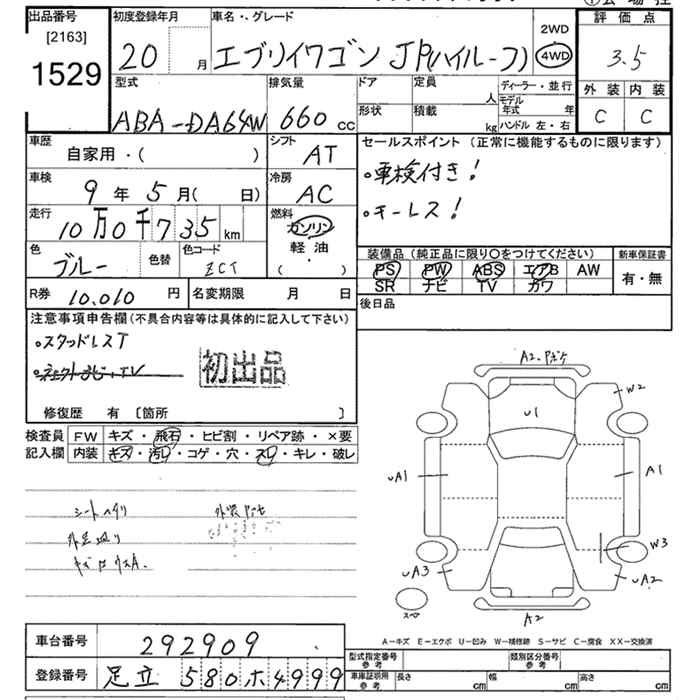 出品番号
[2163]
1529
初度登録年月
20 月
車名・グレード
エブリイワゴン JP(ハイルーフ)
2WD
4WD
評価点
3.5
外装 内装
C C
型式
ABA-DA64W
排気量
660 cc
ドア
形状
定員
人
積載
kg
ディーラー・並行
モデル年式 年
ハンドル 左・右
車歴
自家用・( )
シフト
AT
車検
9年5月( 日)
冷房
AC
走行
10万0千735km
燃料
ガソリン
軽油
( ・ )
色
ブルー
色替
色コード
ZCT
R券 10,010 円
名変期限 月 日
セールスポイント (正常に機能するものに限ります)
・車検付き!
・キーレス!
装備品(純正品に限り○をつけてください)
PS PW ABS エアB AW
SR ナビ TV カワ
新車保証書
有・無
後日品
注意事項申告欄(不具合内容等は具体的に記入して下さい)
・スタッドレスT
初出品
修復歴 有 [箇所 ]
検査員記入欄
FW キズ・飛石・ヒビ割・リペア跡・×要
内装 キズ・汚レ・コゲ・穴・スレ・キレ・破レ
U1
W2
A1
W3
UA2
A2
UA3
UA1
スペア
A-キズ E-エクボ U-凹み W-補修跡 S-サビ C-腐食 XX-交換済
車台番号 292909
登録番号 足立 580 ホ 4999
型式指定番号
参考
類別区分番号
参考
車庫証明用
参考
長さ cm
幅 cm
高さ cm